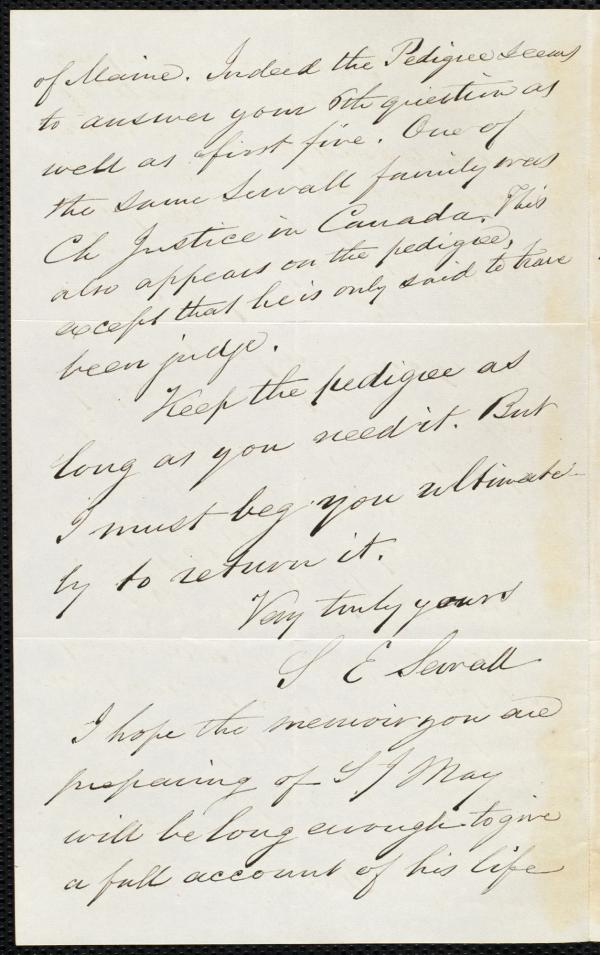 of Maine. Indeed the Pedigree seems
to answer your 6th question as
well as first five. One of
the same Sewall family was
Ch Justice in Canada. This
also appears on the pedigree,
except that he is only said to have
been judge.
Keep the pedigree as
long as you need it. But
I must beg you ultimate-
ly to return it.
Very truly yours
S E Sewall
I hope the memoir you are
preparing of S J May
will be long enough to give
a full account of his life